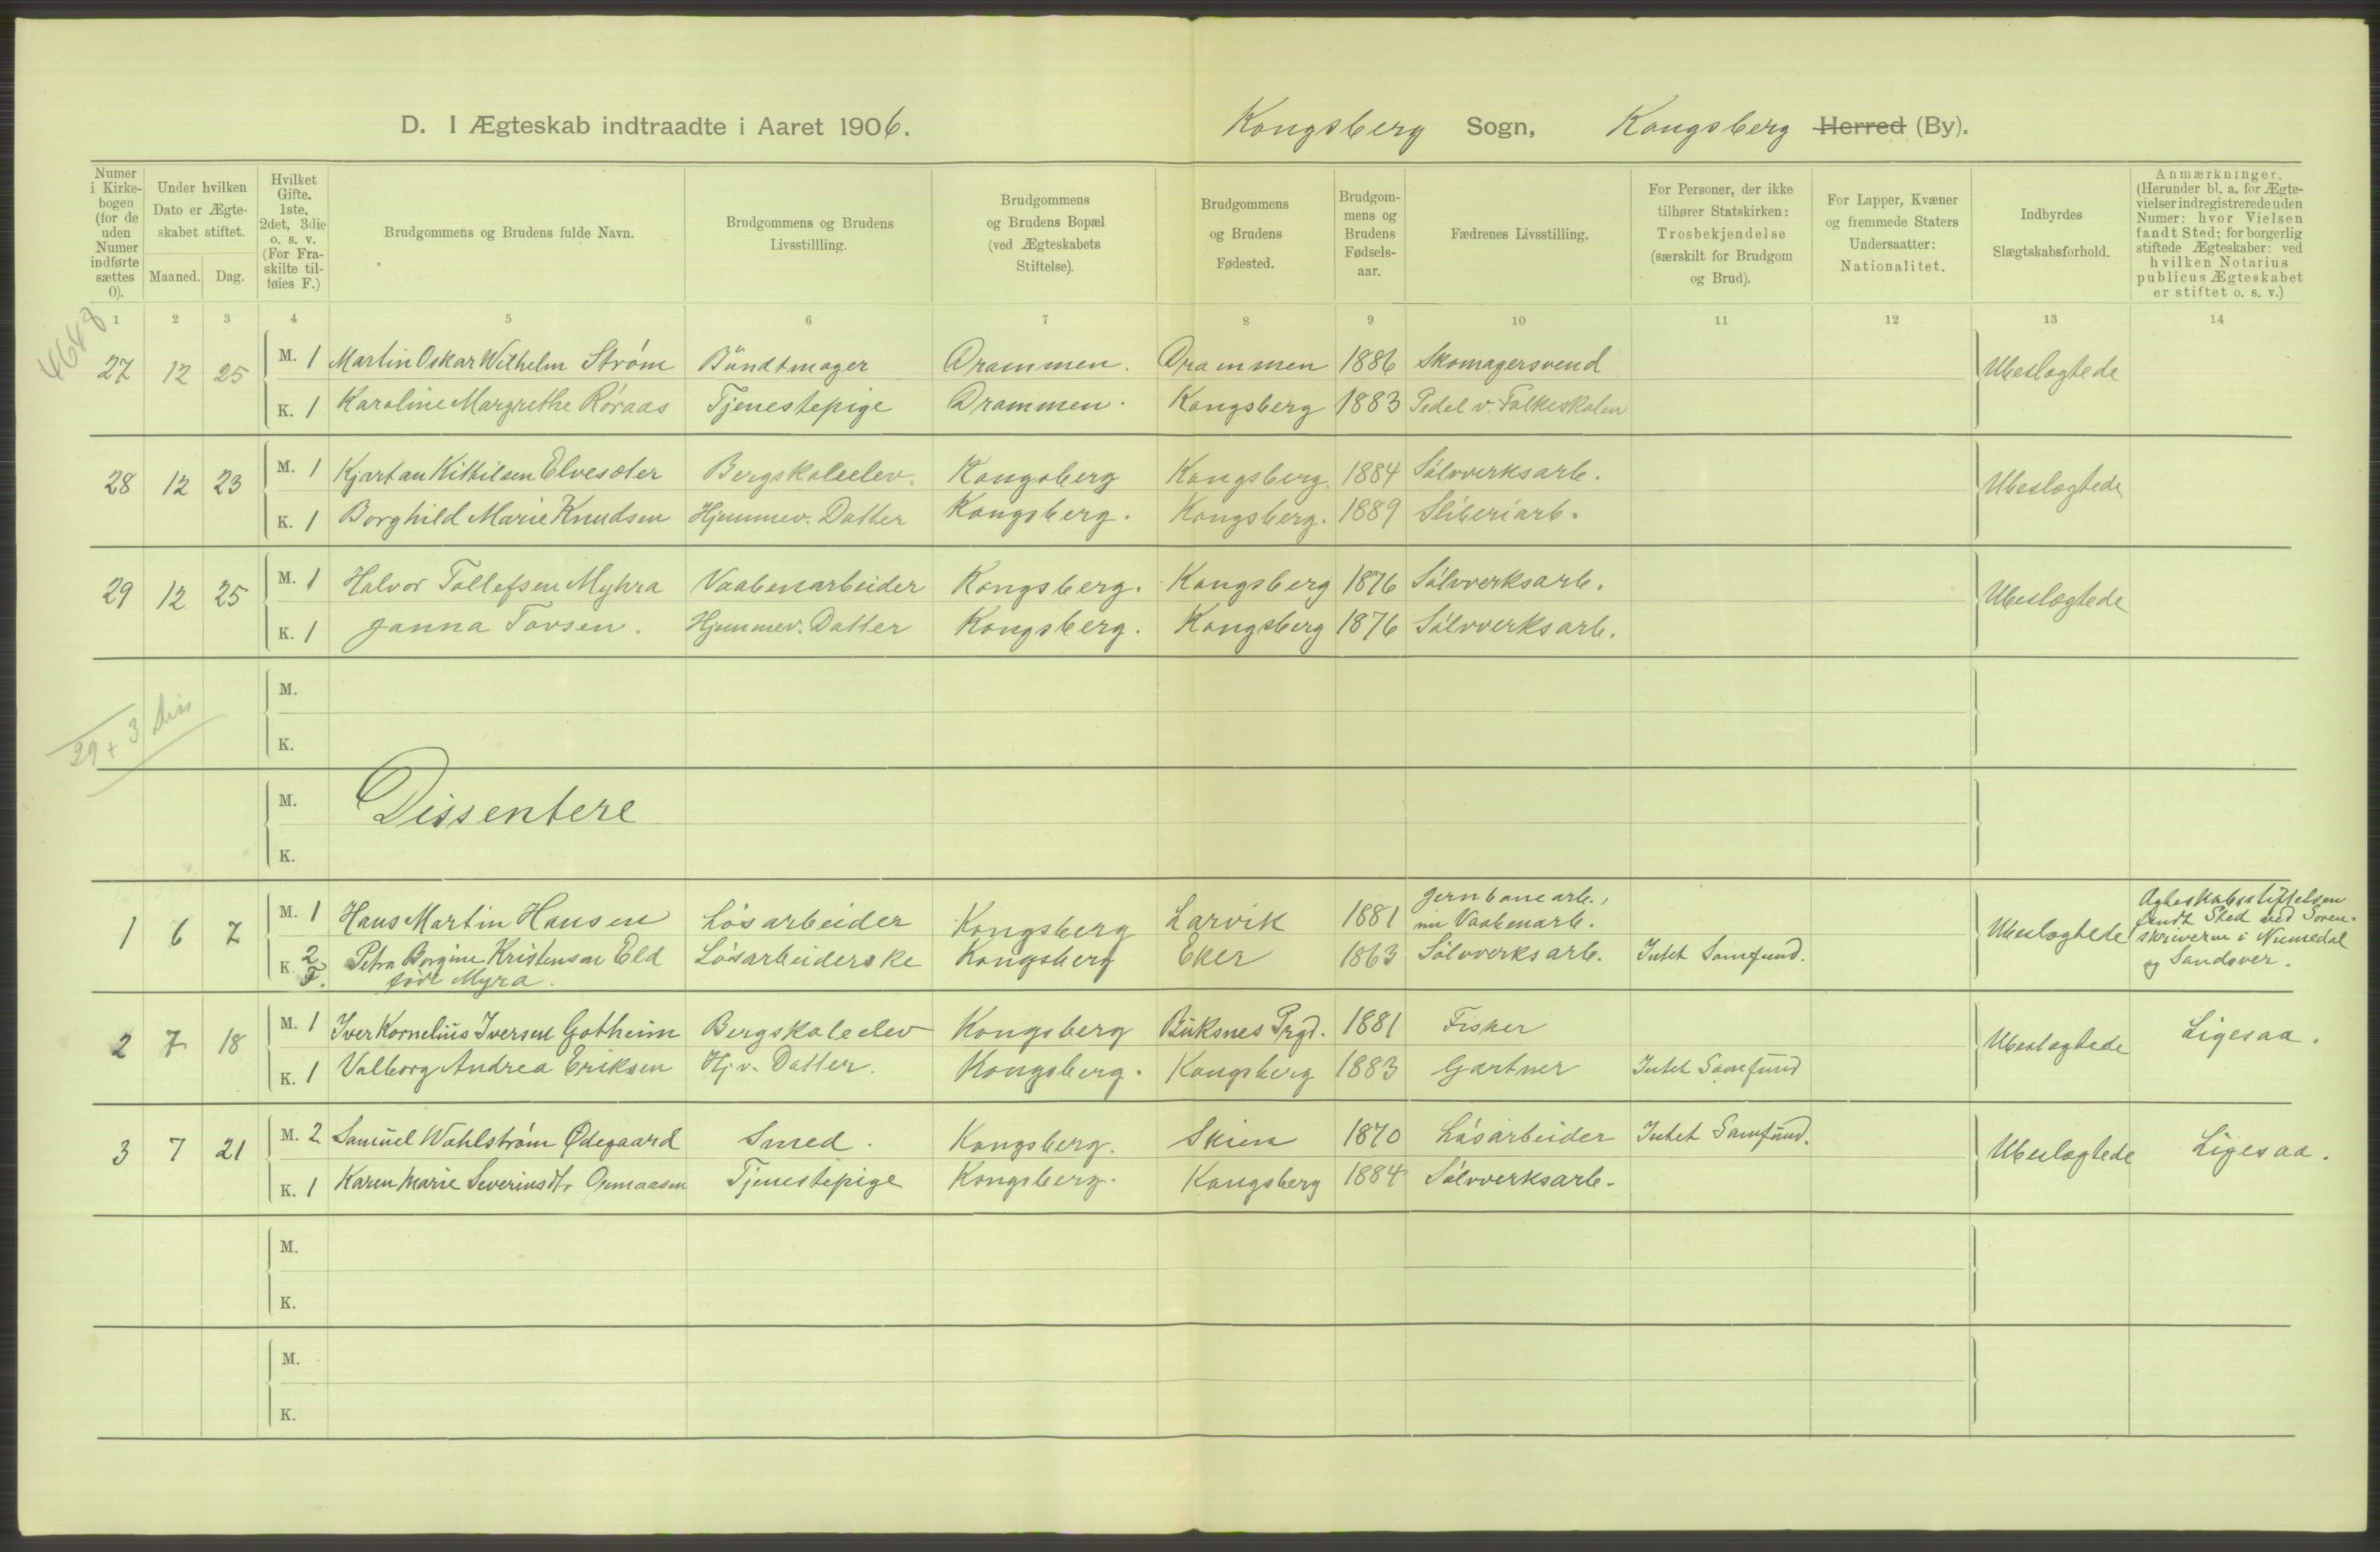 D. I Ægteskab indtraadte i Aaret 1906. Kongsberg Sogn, Kongsberg Herred (By).
Numer i Kirkebogen (for de uden Numer indførte sættes 0).
Under hvilken Dato er Ægteskabet stiftet. Maaned. Dag.
Hvilket Gifte. 1ste, 2det, 3die o. s. v. (For Fraskilte tilføies F.)
Brudgommens og Brudens fulde Navn.
Brudgommens og Brudens Livsstillling.
Brudgommens og Brudens Bopæl (ved Ægteskabets Stiftelse).
Brudgommens og Brudens Fødested.
Brudgommens og Brudens Fødselsaar.
Fædrenes Livsstilling.
For Personer, der ikke tilhører Statskirken: Trosbekjendelse (særskilt for Brudgom og Brud).
For Lapper, Kvæner og fremmede Staters Undersaatter: Nationalitet.
Indbyrdes Slægtskabsforhold.
Anmærkninger. (Herunder bl. a. for Ægtevielser indregistrerede uden Numer: hvor Vielsen fandt Sted; for borgerlig stiftede Ægteskaber: ved hvilken Notarius publicus Ægteskabet er stiftet o. s. v.)
1 2 3 4 5 6 7 8 9 10 11 12 13 14
27 12 25 M. 1 Martin Oskar Wilhelm Strøm Bundtmager Drammen. Drammen 1886 Skomagersvend Ubeslægtede
K. 1 Karoline Margrethe Røraas Tjenestepige Drammen. Kongsberg 1883 Pedel v. Folkeskolen
28 12 23 M. 1 Kjartan Kittilsen Elvesæter Bergskoleelev. Kongsberg Kongsberg. 1884 Sølvverksarb. Ubeslægtede
K. 1 Borghild Marie Knudsen Hjemmev. Datter Kongsberg. Kongsberg. 1889 Sliberiarb.
29 12 25 M. 1 Halvor Tollefsen Myhra Vaabenarbeider Kongsberg. Kongsberg 1876 Sølvverksarb. Ubeslægtede
K. 1 Janna Tovsen. Hjemmev. Datter Kongsberg. Kongsberg 1876 Sølvverksarb.
M.
29 + 3 diss
K.
M. Dissentere
K.
1 6 7 M. 1 Hans Martin Hansen Løsarbeider Kongsberg Larvik 1881 Jernbanearb., nu Vaabenarb. Ubeslægtede Ægteskabsstiftelsen fandt Sted ved Sorenskriveren i Numedal og Sandsver.
K. 2 F. Petra Borgine Kristensen Eld født Myra. Løsarbeiderske Kongsberg Eker 1863 Sølvverksarb. Intet Samfund.
2 7 18 M. 1 Iver Kornelius Iversen Gotheim Bergskoleelev Kongsberg Buksnes Prgd. 1881 Fisker Ubeslægtede Ligesaa.
K. 1 Valborg Andrea Eriksen Hj. v. Datter. Kongsberg. Kongsberg 1883 Gartner Intet Samfund
3 7 21 M. 2 Samuel Wahlstrøm Ødegaard Smed. Kongsberg. Skien 1870 Løsarbeider Intet Samfund. Ubeslægtede Ligesaa.
K. 1 Karen Marie Severinsdtr Tjenestepige Kongsberg. Kongsberg 1884 Sølvverksarb.
M.
K.
M.
K.